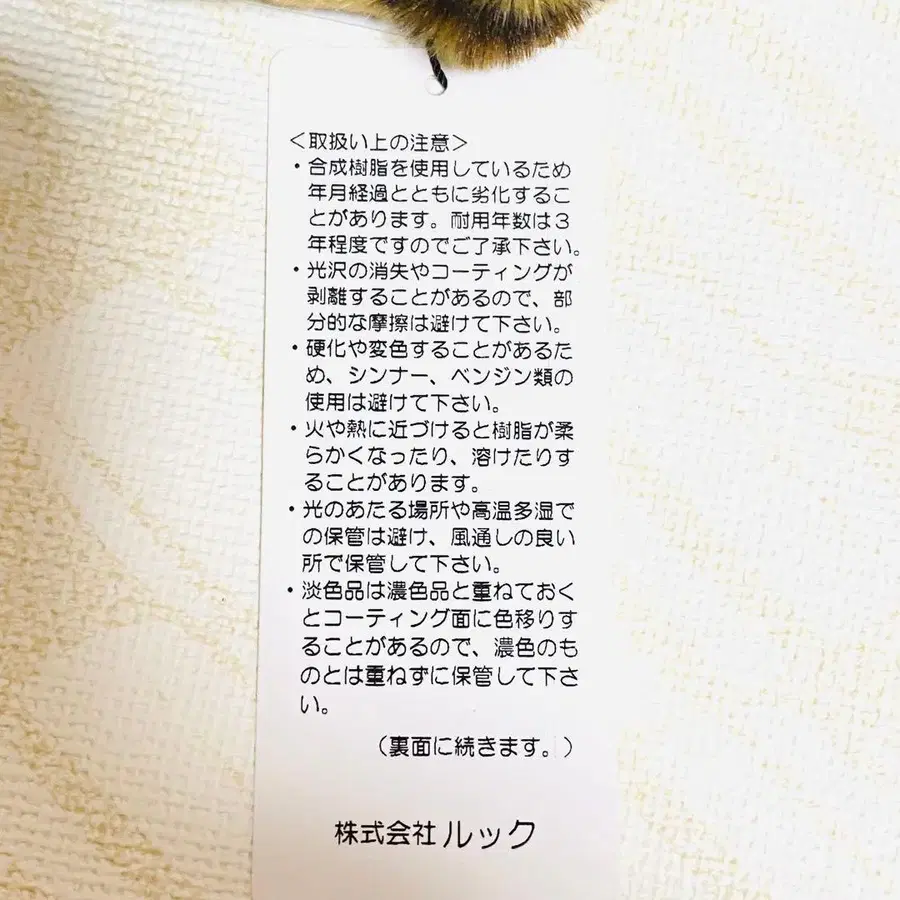 ＜取扱い上の注意＞
・合成樹脂を使用しているため
年月経過とともに劣化するこ
とがあります。耐用年数は３
年程度ですのでご了承下さい。
・光沢の消失やコーティングが
剥離することがあるので、部
分的な摩擦は避けて下さい。
・硬化や変色することがあるた
め、シンナー、ベンジン類の
使用は避けて下さい。
・火や熱に近づけると樹脂が柔
らかくなったり、溶けたりす
ることがあります。
・光のあたる場所や高温多湿で
の保管は避け、風通しの良い
所で保管して下さい。
・淡色品は濃色品と重ねておく
とコーティング面に色移りす
ることがあるので、濃色のも
のとは重ねずに保管して下さ
い。
（裏面に続きます。）
株式会社 ルック